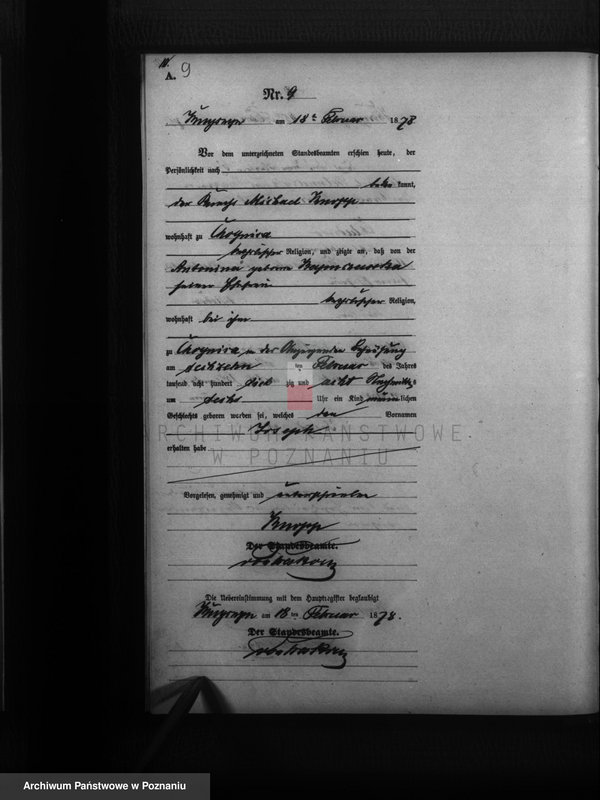 A. 9
Nr. 9
am 18 ten Februar 1878
Vor dem unterzeichneten Standesbeamten erschien heute, der
Persönlichkeit nach
bekannt,
der Knecht Michael Knopp
wohnhaft zu
katholischer Religion, und zeigte an, daß von der
Antonina geborene
seiner Ehefrau
katholischer Religion,
wohnhaft bei ihm
zu in der Behausung
am ten Februar des Jahres
tausend acht hundert siebzig und acht Nachmittags
um sechs Uhr ein Kind männlichen
Geschlechts geboren worden sei, welches den Vornamen
Joseph
erhalten habe
ARCHIWUM PAŃSTWOWE
W POZNANIU
Vorgelesen, genehmigt und unterschrieben
Knopp
Der Standesbeamte.
Die Uebereinstimmung mit dem Hauptregister beglaubigt
am 18 ten Februar 1878.
Der Standesbeamte.
Archiwum Państwowe w Poznaniu